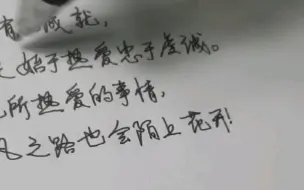 有成就,
始于热爱忠于虔诚。
所热爱的事情,
之路也会陌上花开!